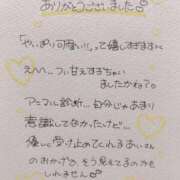 ありがとうございました
「やっぱり可愛い!!」って嬉しすぎます
えへへ...つい甘えすぎちゃい
ましたかね?
アニマル診断...自分じゃあまり
意識してなかったけど...
優しく受け止めてくれるあいさんの
おかげで、そう見えてるのかも
しれません